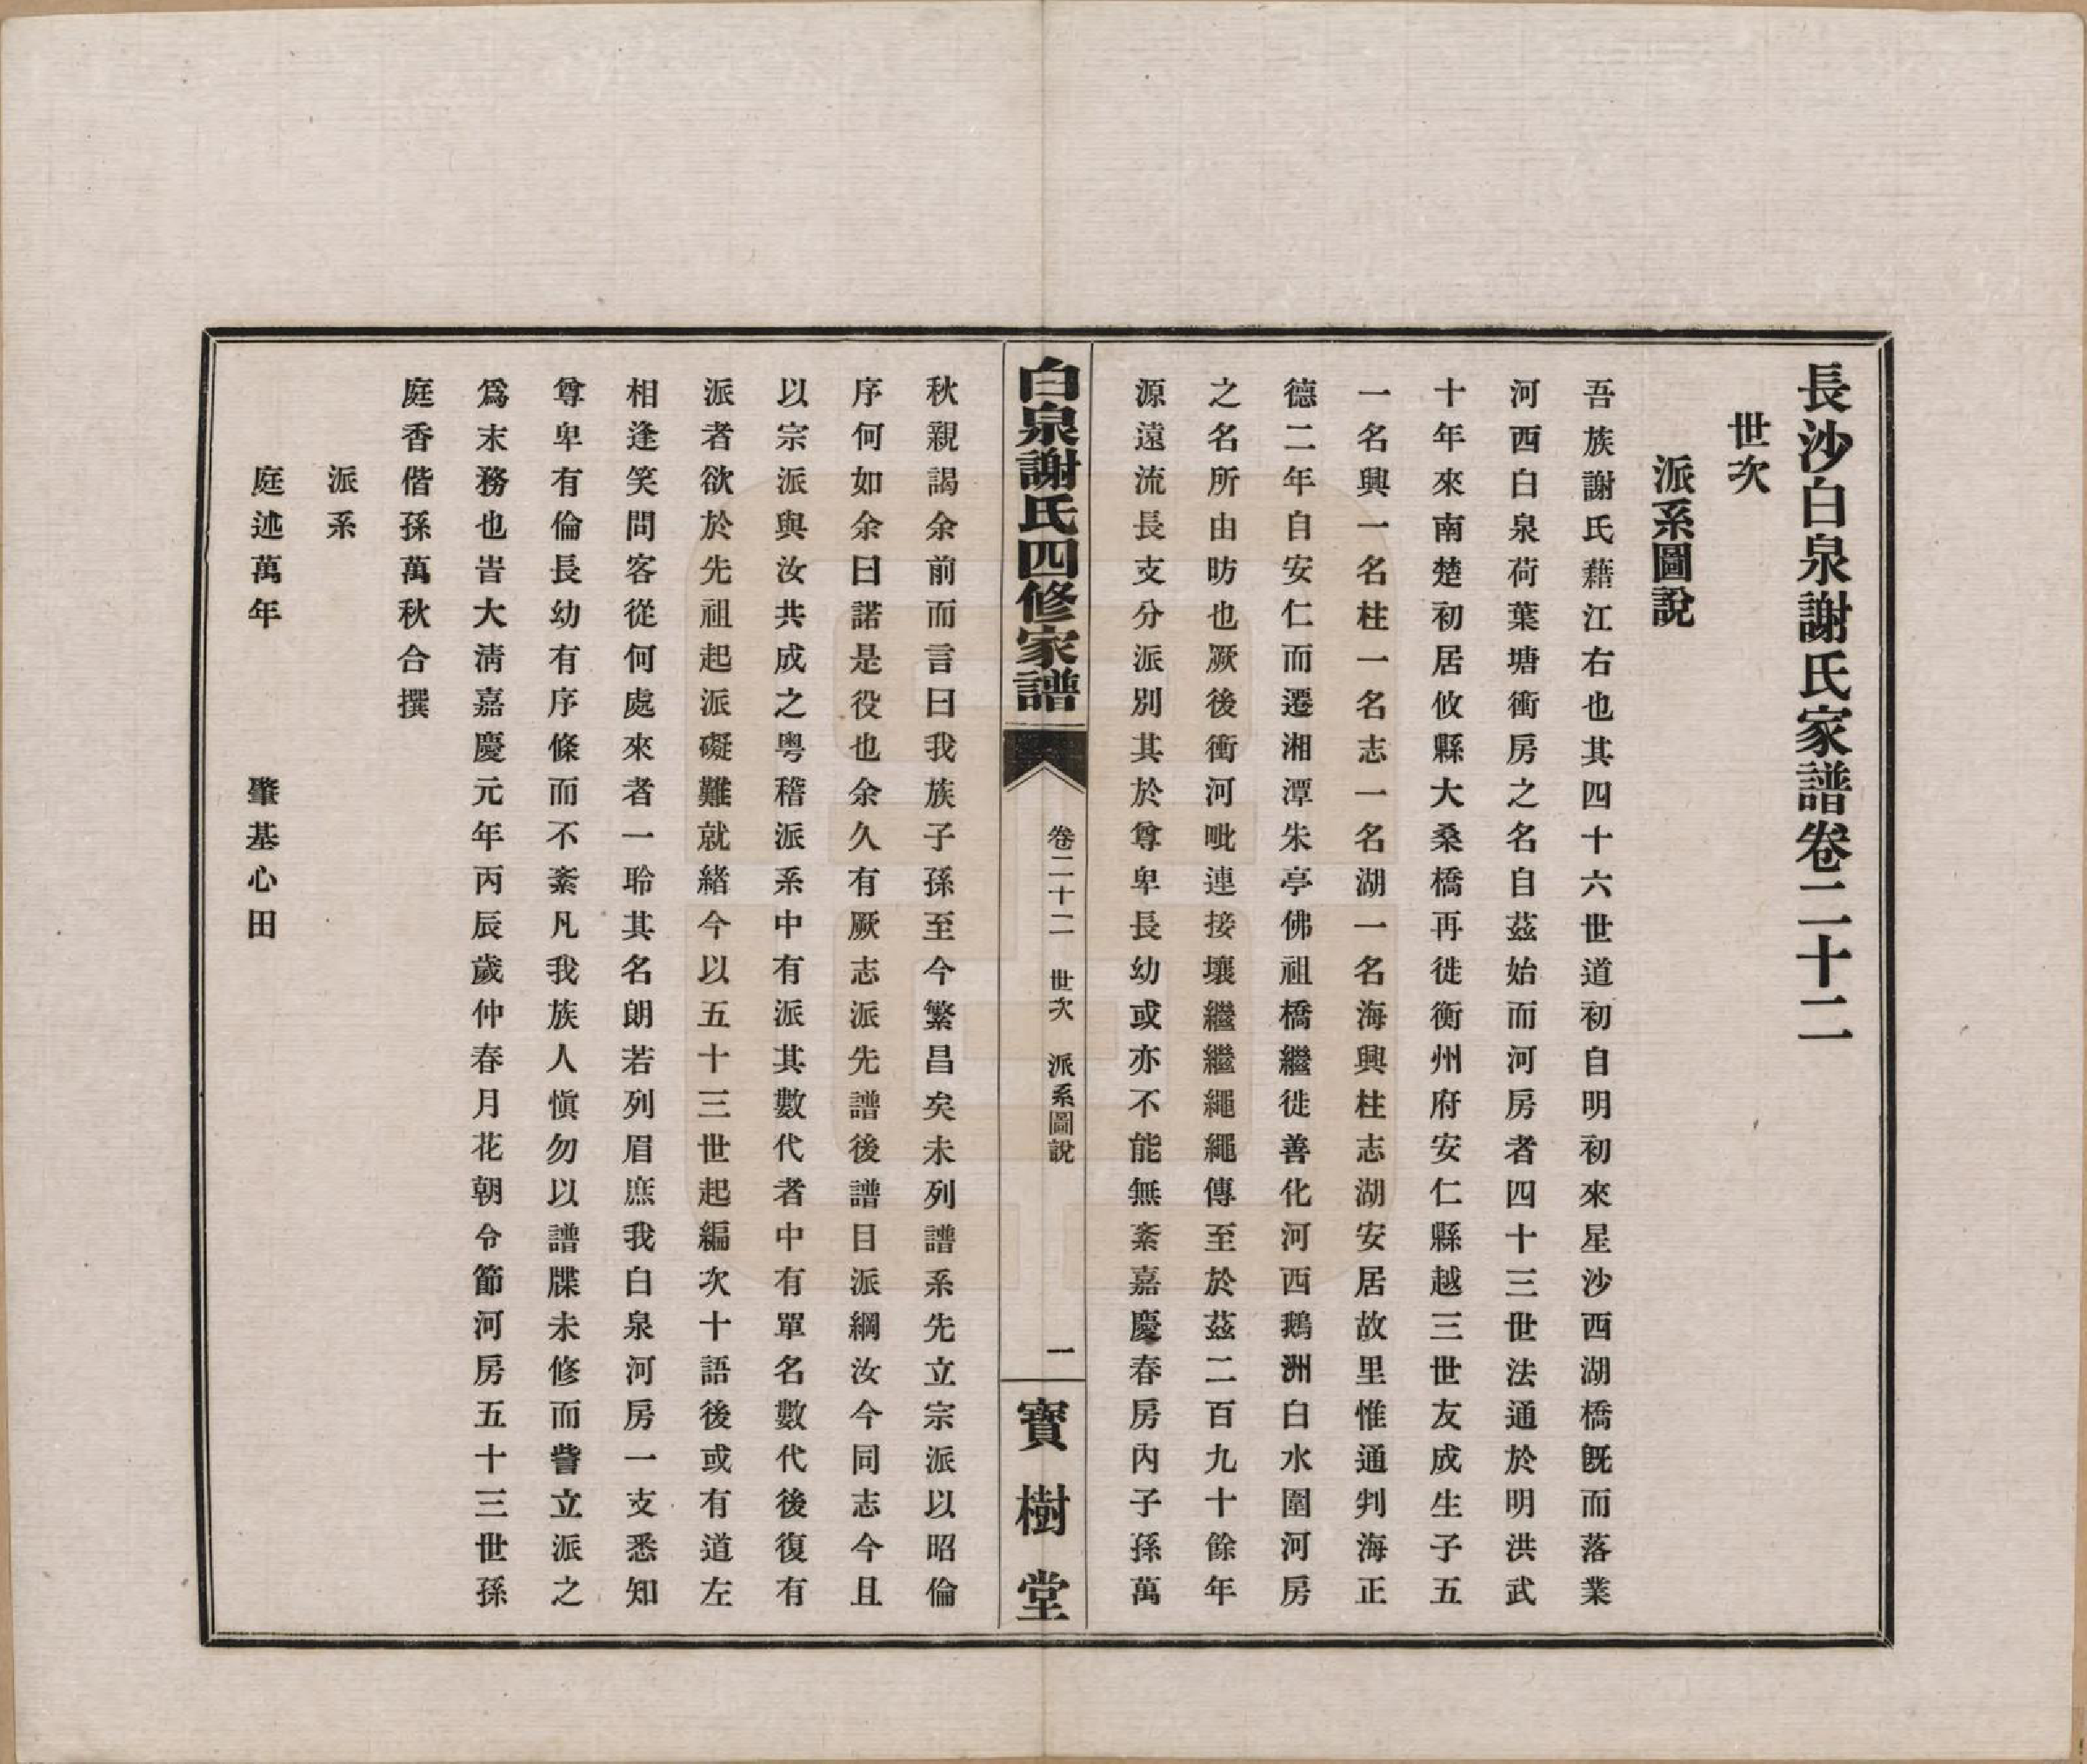 長沙白泉謝氏家譜卷二十二
世次
派系圖說
吾族謝氏藉江右也其四十六世道初自明初來星沙西湖橋旣而落業
河西白泉荷葉塘衝房之名自茲始而河房者四十三世法通於明洪武
十年來南楚初居攸縣大桑橋再徙衡州府安仁縣越三世友成生子五
一名興一名柱一名志一名湖一名海興柱志湖安居故里惟通判海正
德二年自安仁而遷湘潭朱亭佛祖橋繼徙善化河西鵝洲白水圍河房
之名所由昉也厥後衝河毗連接壤繼繼繩繩傳至於茲二百九十餘年
源遠流長支分派別其於尊卑長幼或亦不能無紊嘉慶春房內子孫萬
白泉謝氏四修家譜
卷二十二 世次 派系圖說
一
寶樹堂
秋親謁余前而言曰我族子孫至今繁昌矣未列譜系先立宗派以昭倫
序何如余曰諾是役也余久有厥志派先譜後譜目派綱汝今同志今且
以宗派與汝共成之粤稽派系中有派其數代者中有單名數代後復有
派者欲於先祖起派礙難就緒今以五十三世起編次十語後或有道左
相逢笑問客從何處來者一聆其名朗若列眉庶我白泉河房一支悉知
尊卑有倫長幼有序條而不紊凡我族人愼勿以譜牒未修而訾立派之
爲末務也旹大淸嘉慶元年丙辰歲仲春月花朝令節河房五十三世孫
庭香偕孫萬秋合撰
派系
庭述萬年 肇基心田